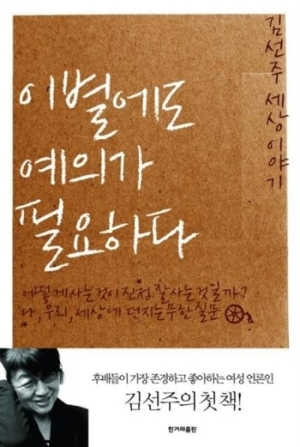 김선주 세상 이야기
이별에도
예의가
필요하다
어떻게 사는 것이 진정, 잘 사는 것일까?
나, 우리, 세상에 던지는 무한 질문
후배들이 가장 존경하고 좋아하는 여성 언론인
김선주의 첫 책!
한겨레출판